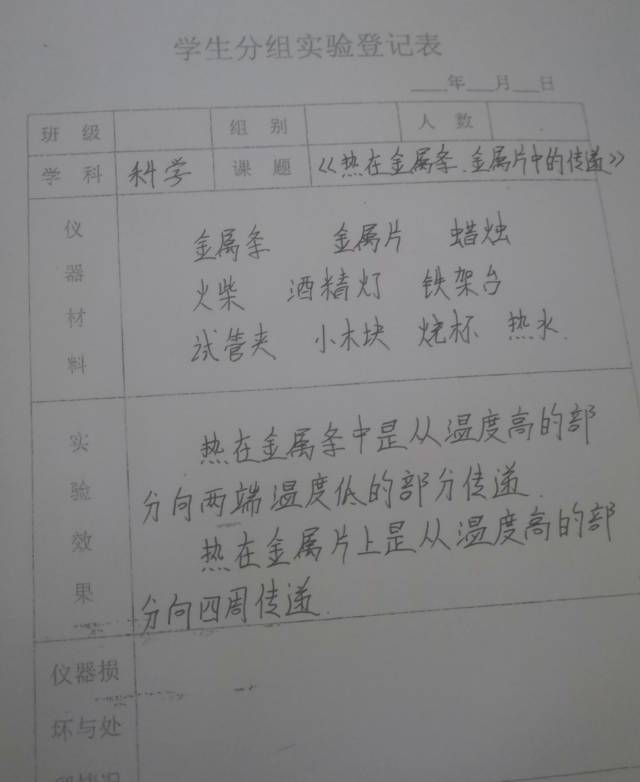 学生分组实验登记表
年 月 日
班级 组别 人数
学科 科学 课题 《热在金属条、金属片中的传递》
仪器材料
金属条 金属片 蜡烛
火柴 酒精灯 铁架台
试管夹 小木块 烧杯 热水.
实验效果
热在金属条中是从温度高的部
分向两端温度低的部分传递.
热在金属片上是从温度高的部
分向四周传递.
仪器损
坏与处